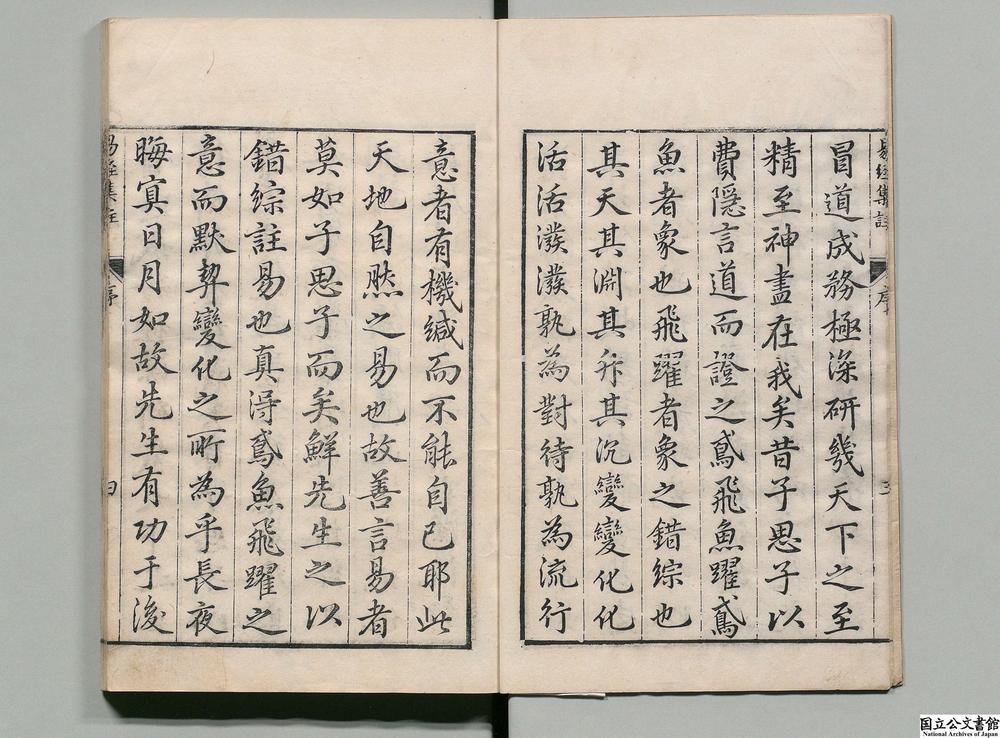 易經集註
序
三
冒道成務極深研幾天下之至
精至神盡在我矣昔子思子以
費隱言道而證之鳶飛魚躍鳶
魚者象也飛躍者象之錯綜也
其天其淵其升其沉變變化化
活活潑潑孰為對待孰為流行
意者有機緘而不能自已耶此
天地自然之易也故善言易者
莫如子思子而矣鮮先生之以
錯綜註易也真得鳶魚飛躍之
意而默契變化之所為乎長夜
晦冥日月如故先生有功于後
易經集註
序
四
国立公文書館
National Archives of Japan